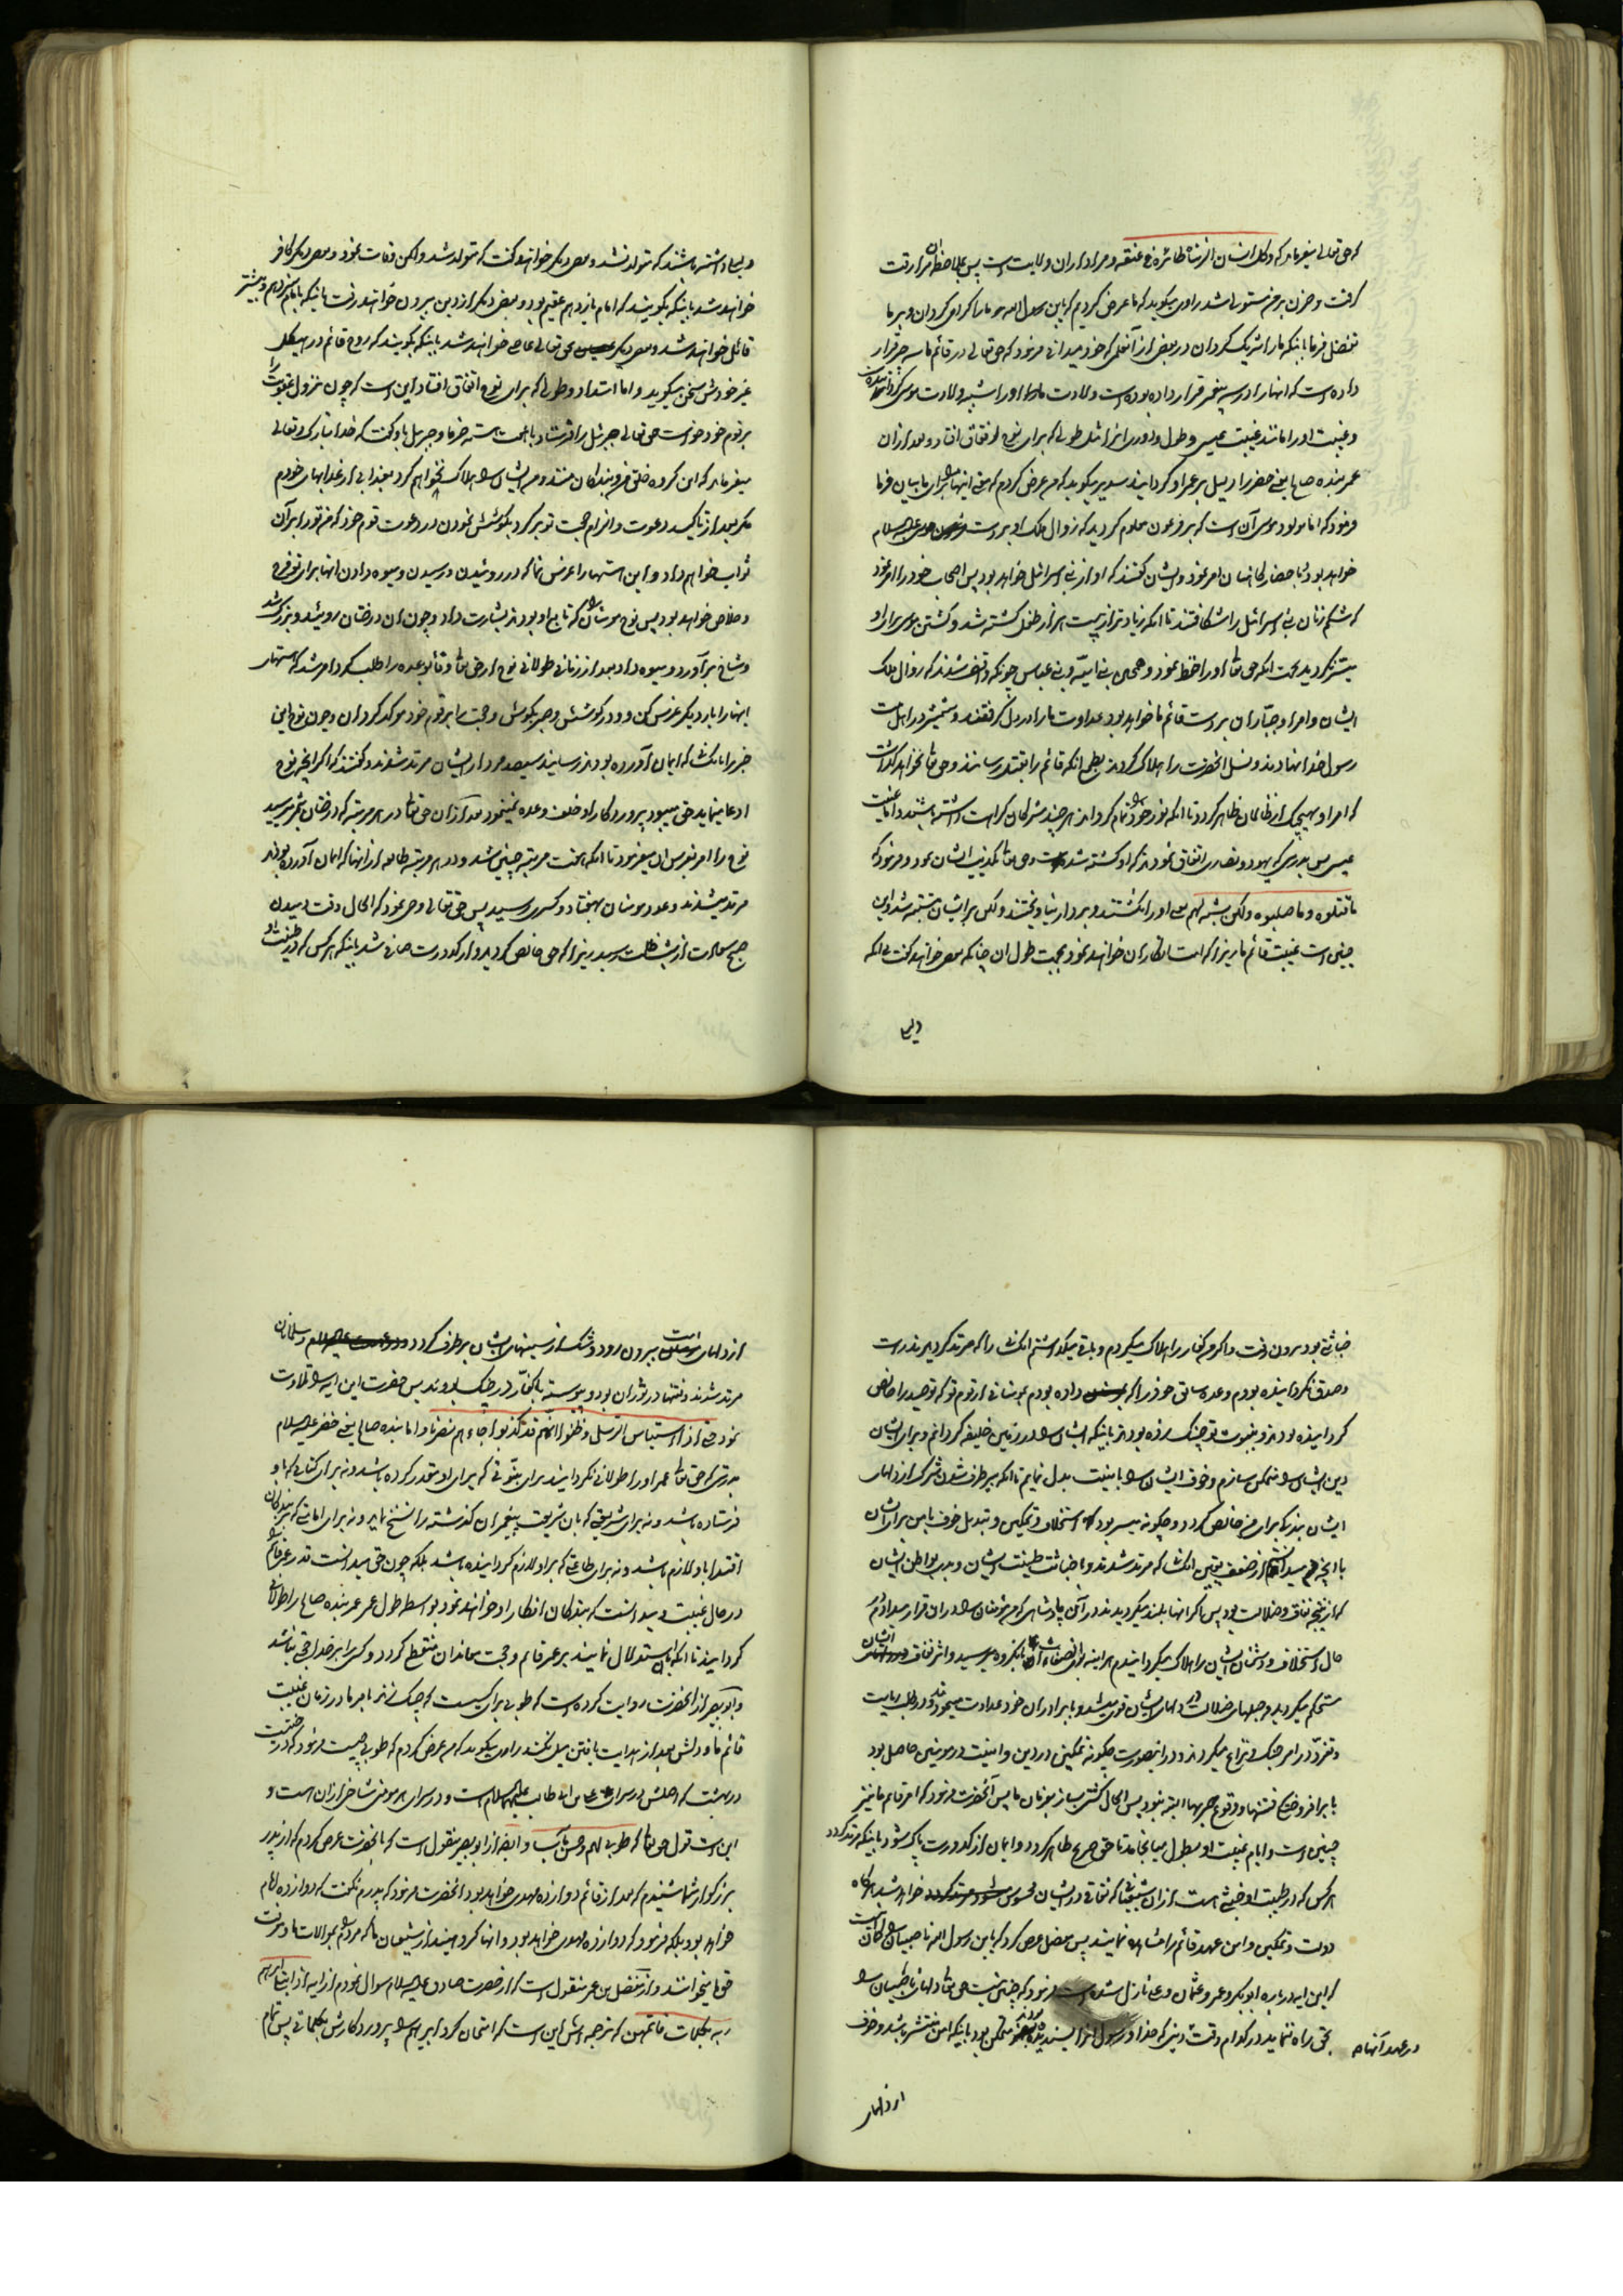 که حق تعالی میفرماید که و کل انسان الزمناه طائره فی عنقه و مراد از ان ولایت است پس بملاحظه ان مرا رقت
گرفت و حزن بر من مستولی شد راوی میگوید که ما عرض کردیم که یابن رسول الله ما را گرامی گردان و بر ما
تفضل فرما باینکه ما را شریک گردان در بعض از آنعلمی که خود میدانی فرمود که حق تعالی در قائم ما سه چیز قرار
داده است که انها را در سه پیغمبر قرار داده بوده است ولادت او را شبیه ولادت موسی گردانیده
و غیبت او را مانند غیبت عیسی و طول دادن را مثل طولی که برای نوح اتفاق افتاد و بعد از ان
عمر بنده صالح یعنی خضر را دلیل بر عمر او گردانید سدیر میگوید که من عرض کردم که معنی اینها را برای ما بیان فرما
فرمود که اما مولود موسی آن است که فرعون معلوم گردید که زوال ملک او بدست موسی علیه السلام
خواهد بود باحضار کاهنان امر نمود و ایشان گفتند که او از بنی اسرائیل خواهد بود پس اصحاب خود را امر نمود
که شکم زنان بنی اسرائیل را شکافتند تا انکه زیاده تر از بیست هزار طفل کشته شد و کشتن موسی برای او
میسر نگردید بجهت انکه حق تعالی او را حفظ نمود و همچنین بنی امیه و بنی عباس چونکه واقف شدند که زوال ملک
ایشان و امرا و جباران بر دست قائم ما خواهد بود عداوت ما را در دل گرفتند و شمشیر در اهل بیت
رسول خدا نهادند و نسل انحضرت را هلاک کردند بطمع انکه قائم را بقتل رسانند و حق تعالی نخواهد گذاشت
که امر او بهیچیک از ظالمان ظاهر گردد تا انکه نور خود را تمام گرداند هر چند مشرکان کراهت داشته باشند و اما غیبت
عیسی پس بدرستی که یهود و نصاری اتفاق نمودند که او کشته شده است و حق تعالی تکذیب ایشان نمود و فرمود که
ما قتلوه و ما صلبوه ولکن شبه لهم یعنی او را نکشتند و بر دار نیاویختند ولکن بر ایشان مشتبه شد و این
چنین است غیبت قائم ما زیرا که امت انکار ان خواهند نمود بجهت طول ان چنانکه بعضی خواهند گفت بی انکه
و بعضی دیگر خواهند گفت که متولد شد ولکن وفات نمود و بعضی دیگر کافر
خواهند شد باینکه بگویند که امام یازدهم عقیم بود و بعضی دیگر از دین بیرون خواهند رفت باینکه بامام سیزدهم و بیشتر
قائل خواهند شد و بعضی دیگر بحق تعالی عاصی خواهند شد باینکه بگویند که روح قائم در هیکل
غیر خودش سخن میگوید و اما امتداد و طولی که برای نوح اتفاق افتاد این است که چون نزول عقوبت را
بر قوم خود خواست حق تعالی جبرئیل را فرستاد با هفت هسته خرما و جبرئیل باو گفت که خدا تبارک و تعالی
میفرماید که این گروه خلق من و بندگان منند و من ایشان را هلاک نخواهم کرد بعذابی از عذابهای خودم
مگر بعد از تاکید دعوت و الزام حجت تو برگرد بکوشش نمودن در دعوت قوم خود که من تو را بر آن
ثواب خواهم داد و این هستها را غرس نما که در روئیدن و رسیدن و میوه دادن انها برای تو فرج
و خلاص خواهد بود پس نوح مومنان را که تابع او بودند بشارت داد و چون ان درختان روئید و بزرگ شد
و شاخ برآورد و میوه داد بعد از زمانی طولانی نوح از حق تعالی وفا بوعده را طلب کرد امر شد که هستهای
اینها را بار دیگر غرس کن و در کوشش و صبر بکوش و حجت را بر قوم خود موکد گردان و چون نوح این
خبر را بانکسانی که ایمان آورده بودند رسانید سیصد مرد از ایشان مرتد شدند و گفتند که اگر آنچه نوح
ادعا مینماید حق میبود پروردگار او خلف وعده نمینمود بعد از ان حق تعالی در هر مرتبه که درختان بثمر میرسید
نوح را امر بغرس ان میفرمود تا انکه هفت مرتبه چنین شد و در هر مرتبه طایفه از انها که ایمان آورده بودند
مرتد میشدند و عدد مومنان بهفتاد و کسری رسید پس حق تعالی وحی نمود که الحال وقت دمیدن
صبح سعادت از شب ظلمت رسید زیرا که حق خالص گردید و از کدورت صافی شد باینکه هر کس که در طینت او
خباثتی بود بیرون رفت و اگر من کفار را هلاک میکردم و باقی میگذاشتم انکسانی را که مرتد گردیدند راست
و صدق نگردانیده بودم وعده سابق خود را که داده بودم بمومنانی از قوم تو که توحید را خالص
گردانیده بودند و بنبوت تو چنگ زده بودند باینکه ایشان را در زمین خلیفه گردانم و برای ایشان
دین ایشان را متمکن سازم و خوف ایشان را بامنیت بدل نمایم تا انکه ببرطرف شدن شرک از دلهای
ایشان بندگی برای من خالص گردد و چگونه میسر بود استخلاف و تمکین و تبدیل خوف بامن برای ایشان
با انچه میدانستم از ضعف یقین انکسانی که مرتد شدند و با خباثت طینت ایشان و بدی بواطن ایشان
که از نتیجه نفاق و ضلالت بود پس اگر انها بلند میگردیدند در آن پادشاهی که من مومنان را در ان قرار میدادم در
حال استخلاف و دشمنان ایشان را هلاک میگردانیدم هر اینه بانگروه میرسید و اثر نفاق ایشان
مستحکم میگردید و حبلهای ضلالت در دلهای ایشان قوی میشد و با برادران خود عداوت مینمودند و در طلب ریاست
و تفرد در امر جنگ و نزاع میکردند و در اینصورت چگونه تمکین در دین و امنیت در مومنین حاصل بود
با برافروختن فتنها و وقوع حربها البته نبود پس الحال کشتی بساز بفرمان ما پس آنحضرت فرمود که امر قائم ما نیز
چنین است و ایام غیبت او بطول میانجامد تا حق صریح ظاهر گردد و ایمان از کدورت پاک شود باینکه مرتد گردد
هر کس که در طینت او خبثی است از ان شیعیانی که نفاق در ایشان محسوس خواهد شد هر گاه
دولت و تمکین و امن عهد قائم را مشاهده نمایند پس مفضل عرض کرد که یابن رسول الله ناصبیان را گمان است
که این ایه در باره ابوبکر و عمر و عثمان و علی نازل شده است فرمود که چنین نیست حق تعالی دلهای ناصبیان را
بحق راه ننماید در کدام وقت دینی که خدا و رسول انرا پسندیده بودند متمکن بود باینکه امن منتشر باشد و خوف
در عهد آنها
از دلهای
از دلهای امت بیرون رود و شک از سینهای ایشان برطرف گردد و مسلمانان
مرتد شدند و فتنها در ثوران بود و پیوسته با کفار در جنگ بودند پس حضرت این ایه را تلاوت
نمود حتی اذا استیاس الرسل و ظنوا انهم قد کذبوا جاءهم نصرنا و اما بنده صالح یعنی خضر علیه السلام
بدرستی که حق تعالی عمر او را طولانی نگردانید برای نبوتی که برای او مقدر کرده باشد و نه برای کتابی که باو
فرستاده باشد و نه برای شریعتی که بان شریعت پیغمبران گذشته را نسخ نماید و نه برای امامتی که بندگان
اقتدا باو لازم باشد و نه برای طاعتی که بر او لازم گردانیده باشد بلکه چون حق میدانست قدر عمر قائم را
در حال غیبت و میدانست که بندگان انکار او خواهند نمود بواسطه طول عمر عمر بنده صالح را طولانی
گردانید تا انکه بان استدلال نمایند بر عمر قائم و حجت معاندان منقطع گردد و کسی را بر خدا حجتی نباشد
و ابو بصیر از انحضرت روایت کرده است که طوبی برای کسیست که چنگ زند بامر ما در زمان غیبت
قائم ما و دلش بعد از هدایت یافتن میل نکند راوی میگوید که من عرض کردم که طوبی چیست فرمود که درختیست
در بهشت که اصلش در سرای علی بن ابی طالب علیه السلام است و در سرای هر مومنی شاخی از ان است و
این است قول حق تعالی که طوبی لهم و حسن مآب و ایضا از ابو بصیر منقول است که بانحضرت عرض کردم که از پدر
بزرگوار شما شنیدم که بعد از قائم دوازده مهدی خواهد بود انحضرت فرمود که پدرم نگفت که دوازده امام
خواهد بود بلکه فرمود که دوازده مهدی خواهد بود و انها گروهیند از شیعیان ما که مردم را بموالات ما و معرفت
حق ما میخوانند و از مفضل بن عمر منقول است که از حضرت صادق علیه السلام سوال نمودم از ایه اذ ابتلی ابراهیم
ربه بکلمات فاتمهن که ترجمه اش این است که امتحان کرد ابراهیم را پروردگارش بکلماتی پس تمام